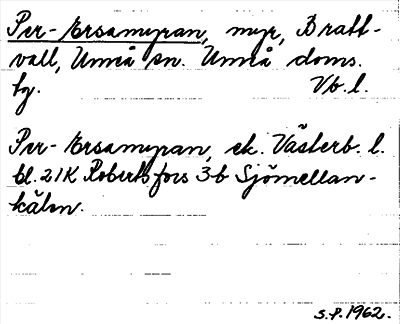 Per-Ersamyran, myr, Bratt-
vall, Umeå sn. Umeå doms.
tg. Vb.l.
Per-Ersamyran, ek. Västerb. l.
bl. 21K Robertsfors 3b Sjömellan-
kälen.
S.P. 1962.